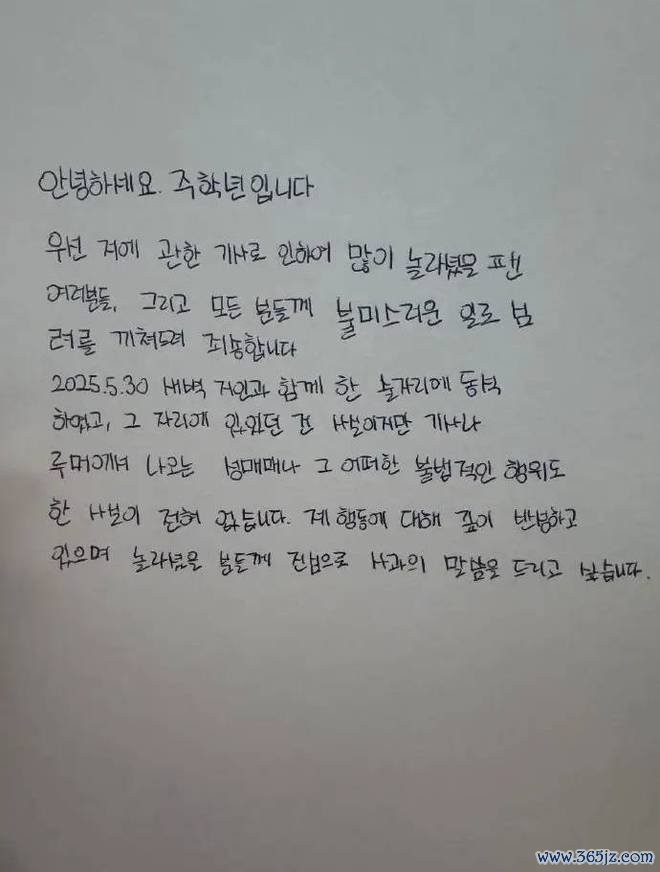 안녕하세요. 주학년입니다
우선 저에 관한 기사로 인하여 많이 놀라셨을 팬
여러분들, 그리고 모든 분들께 불미스러운 일로 심
려를 끼쳐드려 죄송합니다
2025.5.30 새벽 지인과 함께 한 술자리에 동석
하였고, 그 자리에 있었던 건 사실이지만 기사나
루머에서 나오는 성매매나 그 어떠한 불법적인 행위도
한 사실이 전혀 없습니다. 제 행동에 대해 깊이 반성하고
있으며 놀라셨을 분들께 진심으로 사과의 말씀을 드리고 싶습니다.
www.365jz.com